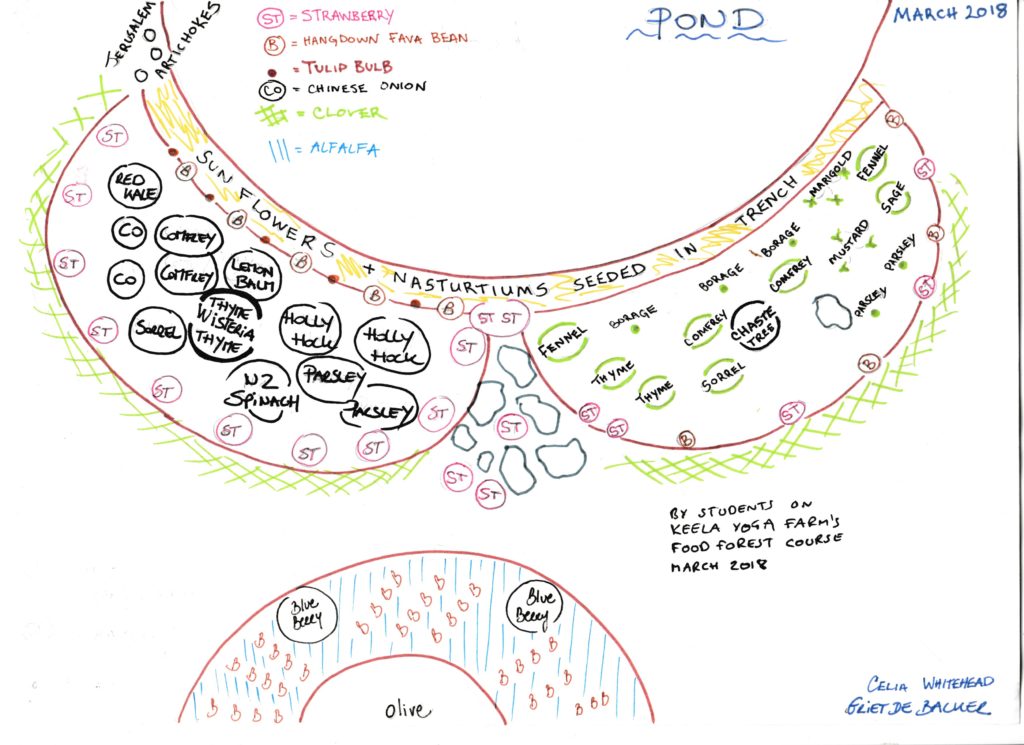 POND
MARCH 2018
ST = STRAWBERRY
B = HANGDOWN FAVA BEAN
= TULIP BULB
CO = CHINESE ONION
= CLOVER
= ALFALFA
JERUSALEM
ARTICHOKES
SUNFLOWERS + NASTURTIUMS SEEDED IN TRENCH
ST
ST
ST
ST
ST
ST
ST
ST
ST
ST
B
B
B
B
B
RED
KALE
CO
CO
COMFREY
COMFREY
LEMON
BALM
SORREL
THYME
WISTERIA
THYME
HOLLY
HOCK
HOLLY
HOCK
NZ
SPINACH
PARSLEY
PARSLEY
ST ST
ST
ST
ST
B
ST
B
ST
B
ST
B
ST
ST
MARIGOLD
FENNEL
SAGE
BORAGE
MUSTARD
PARSLEY
BORAGE
COMFREY
PARSLEY
BORAGE
COMFREY
CHASTE
TREE
FENNEL
THYME
THYME
SORREL
BY STUDENTS ON
KEELA YOGA FARM'S
FOOD FOREST COURSE
MARCH 2018
Blue
Berry
Blue
Berry
B B B B B B B B B B B B
B B B B B B B B B B B B B
B B B B B B B B B B
Olive
CELIA WHITEHEAD
GRIET DE BACKER